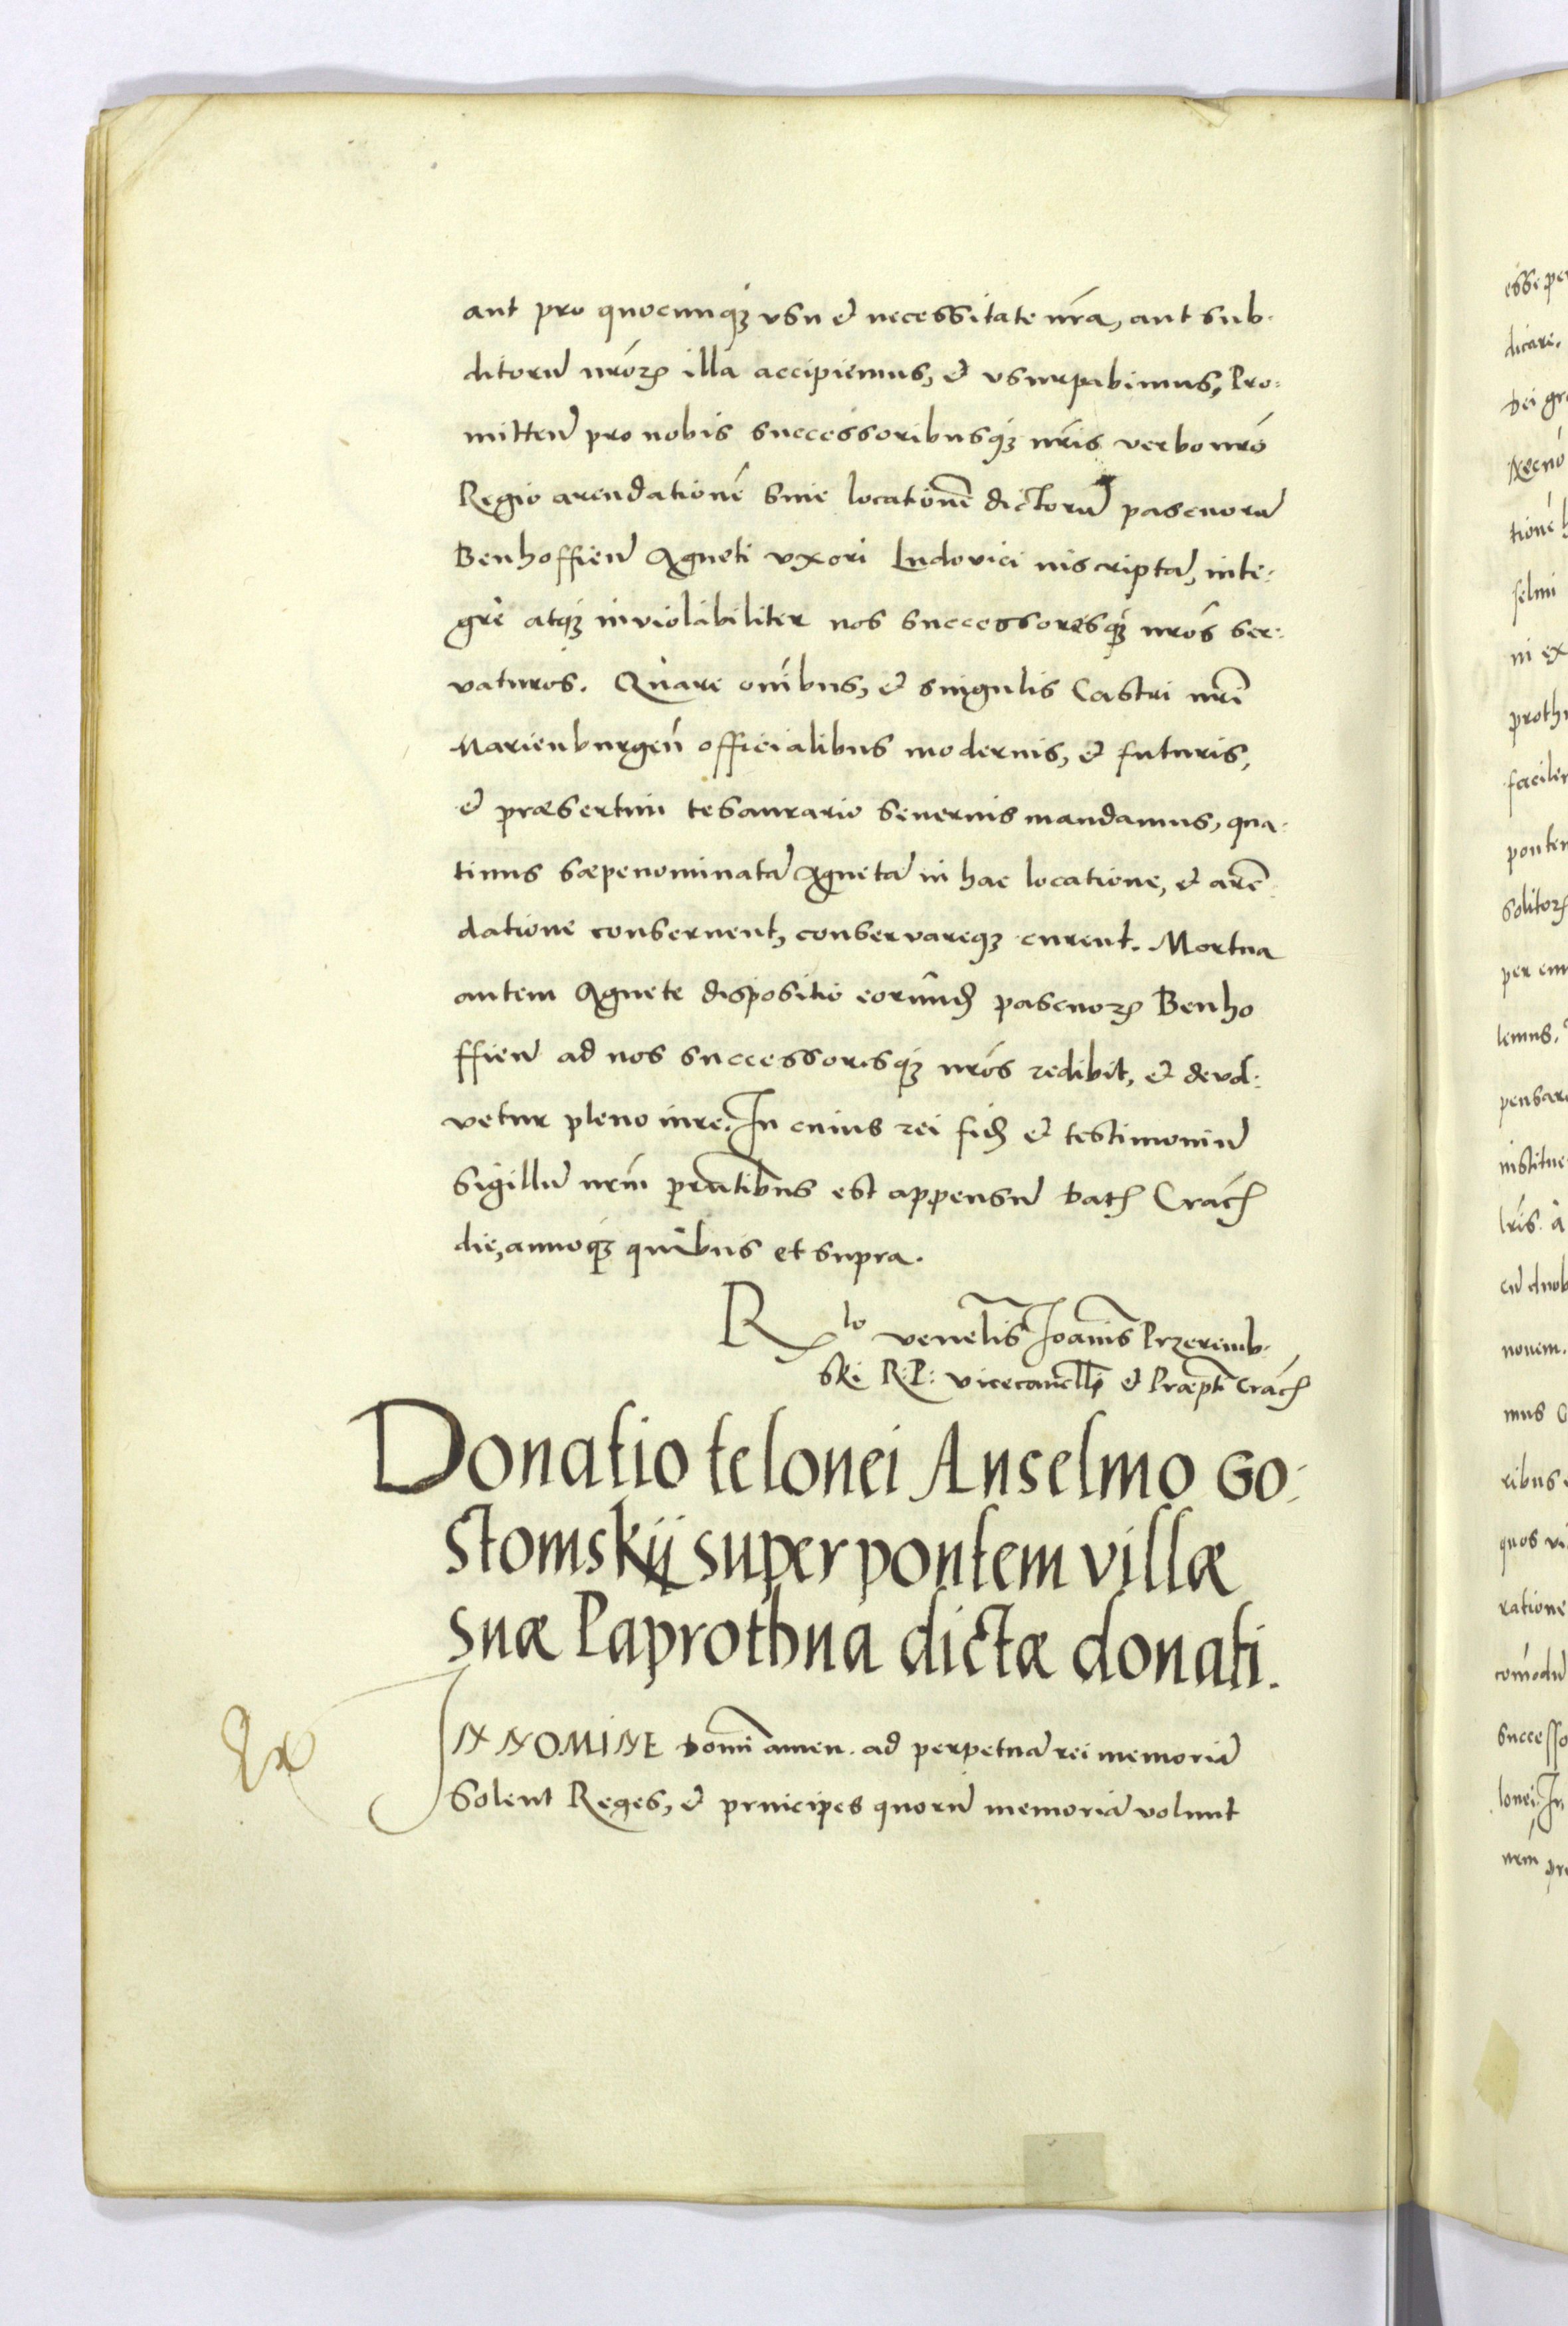 aut pro quocunq₃ usu et necessitate nr̃a, aut sub-
ditorũ nr̃oꝝ illa accipiemus, et usurpabimus, Pro-
mitteñ pro nobis successoribusq₃ nr̃is verbo nr̃o
Regio arendationẽ sive locationẽ dictorũ pascuorũ
Benhoffieñ Agneti uxori Ludovici inscriptã, inte-
gre atq₃ inviolabiliter nos successoresq₃ nr̃os ser-
vaturos. Quare om̃ibus, et singulis Castri nr̃i
Marienburgeñ officialibus modernis, et futuris,
et præsertim tesaurario Severius mandamus, qua-
tinus sæpenominatã Agnetã in hac locatione, et arẽ-
datione conservent, conservareq₃ curent. Mortua
autem Agnete dispositio eorũdẽ pascuoꝝ Benho
ffieñ ad nos successoresq₃ nr̃os redibit, et devol-
vetur pleno iure. In cuius rei fidẽ et testimoniũ
Sigillũ nr̃m pr̃ntibus est appensũ Datꝭ Cracꝭ
die, annoq₃ quibus et supra.
R^lo venelis Joanis Przeremb-
ski R: P: vicecancllꝭ et Præpti Cracꝭ
Donatio telonei Anselmo Go-
stomskij super pontem villæ
suæ Paprothna dictæ donati.
Ex
IN NOMINE Domi amen. ad perpetuã rei memoriã
Solent Reges, et principes quorũ memoriã volunt
esse per
dicare.
Dei gr
Necnõ
tionẽ h
selmi
ni ex
proth
facilem
ponte
solitoꝝ
per em
lemus.
pensar
institue
lr̃is. a
cũ duob
novem.
mus
ribus
quos vi
ratione
com̃odũ
successo
lonei. In
nr̃m pr